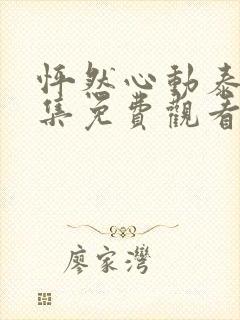 怦然心動泰
集免費觀看
廖家灣